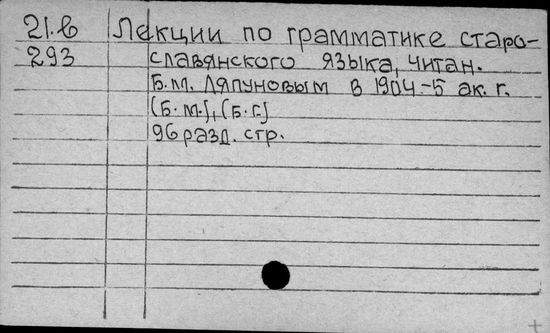 21.в Лекции по грамматике старо-
293 славянского языка, читан.
Б.М. Ляпуновым в 1904-5 ак. г.
(Б. м.), (Б. г.)
96 разд. стр.